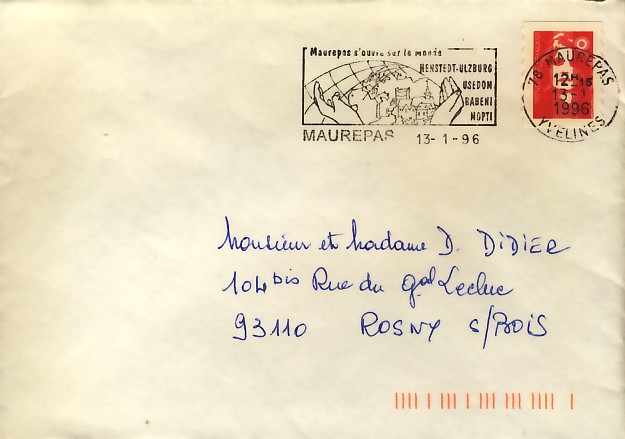 Maurepas s'ouvre sur le monde
HENSTEDT-ULZBURG
USEDOM
BABENI
MOPTI
MAUREPAS 13-1-96
78 MAUREPAS
12H15
13-1
1996
YVELINES
Monsieur et Madame D. DiDiER
104 bis Rue du Gal Leclerc
93110 ROSNY s/BOIS